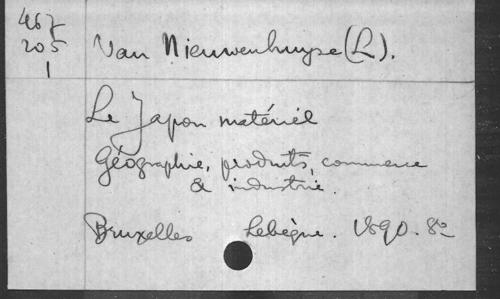 467
205
1
Van Nieuwenhuyse (L).
Le Japon matériel
Géographie, produits, commerce
& industrie.
Bruxelles Lebègue. 1890. 8º